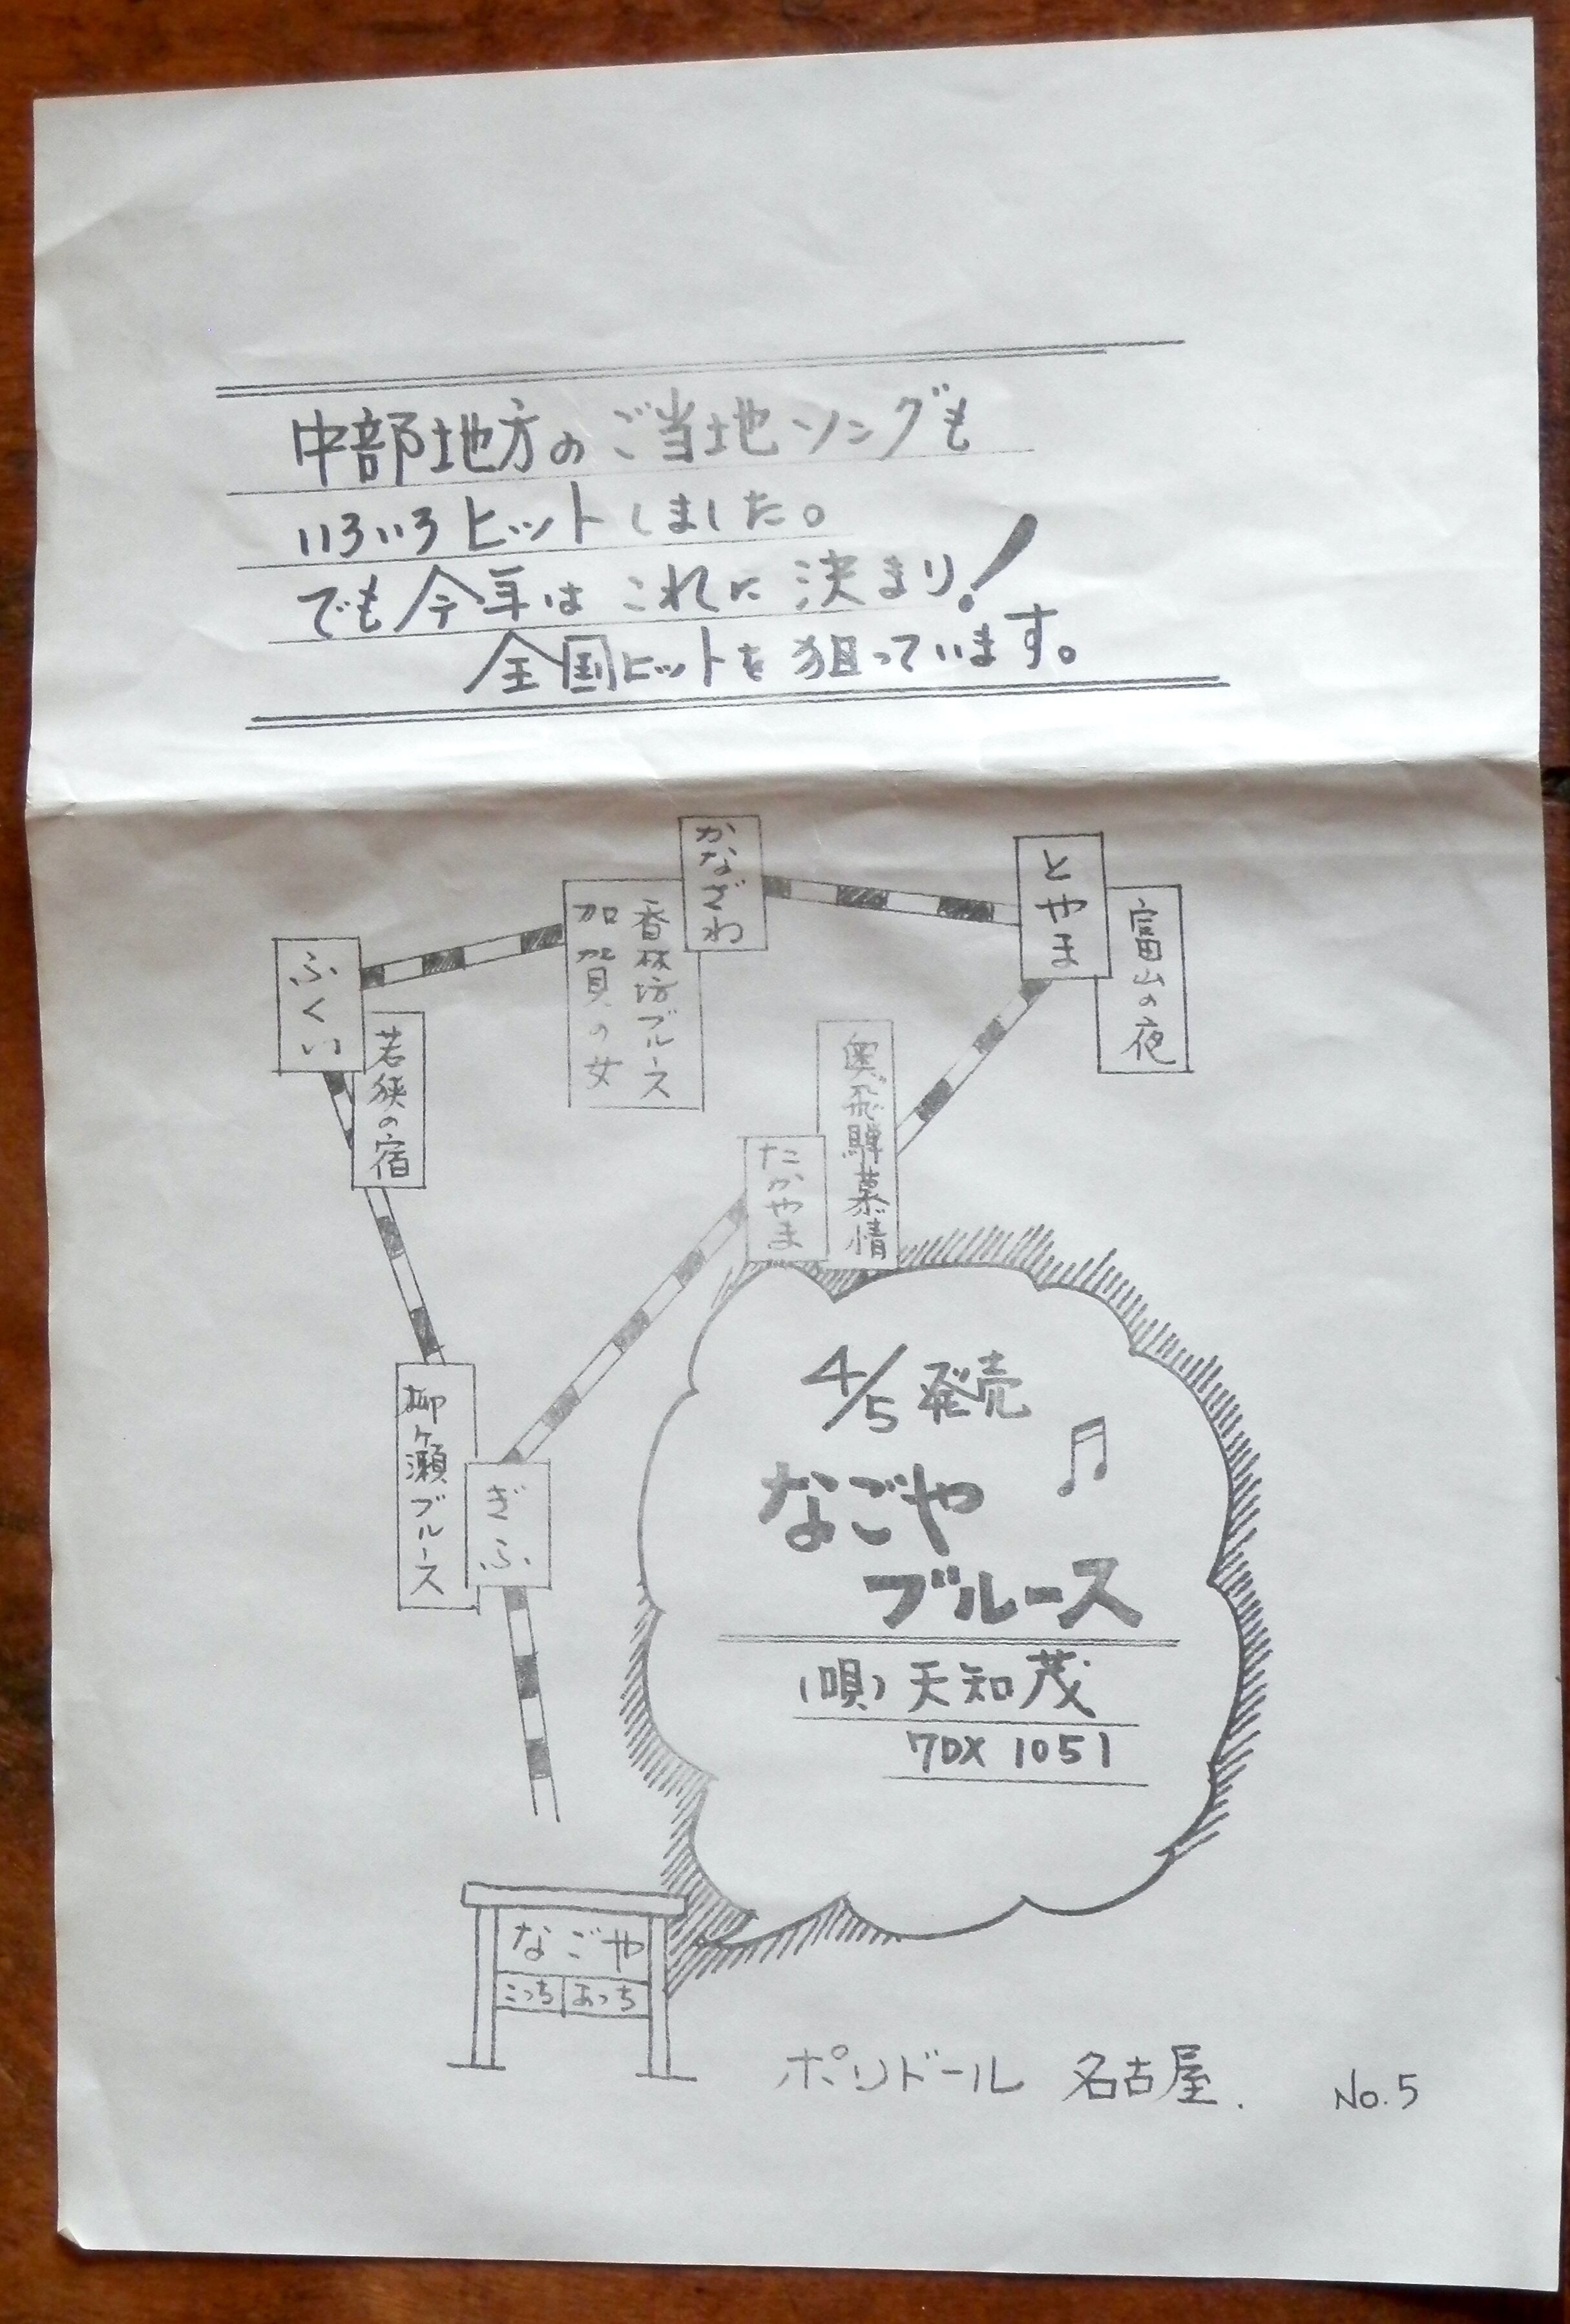 中部地方のご当地ソングも
いろいろヒットしました。
でも今年はこれに決まり!
全国ヒットを狙っています。
かなざわ
香林坊ブルース
加賀の女
とやま
富山の夜
ふくい
若狭の宿
奥飛騨慕情
たかやま
柳ヶ瀬ブルース
ぎふ
4/5 発売
なごや
ブルース
(唄) 天知茂
7DX 1051
なごや
こっち あっち
ポリドール 名古屋.
No.5